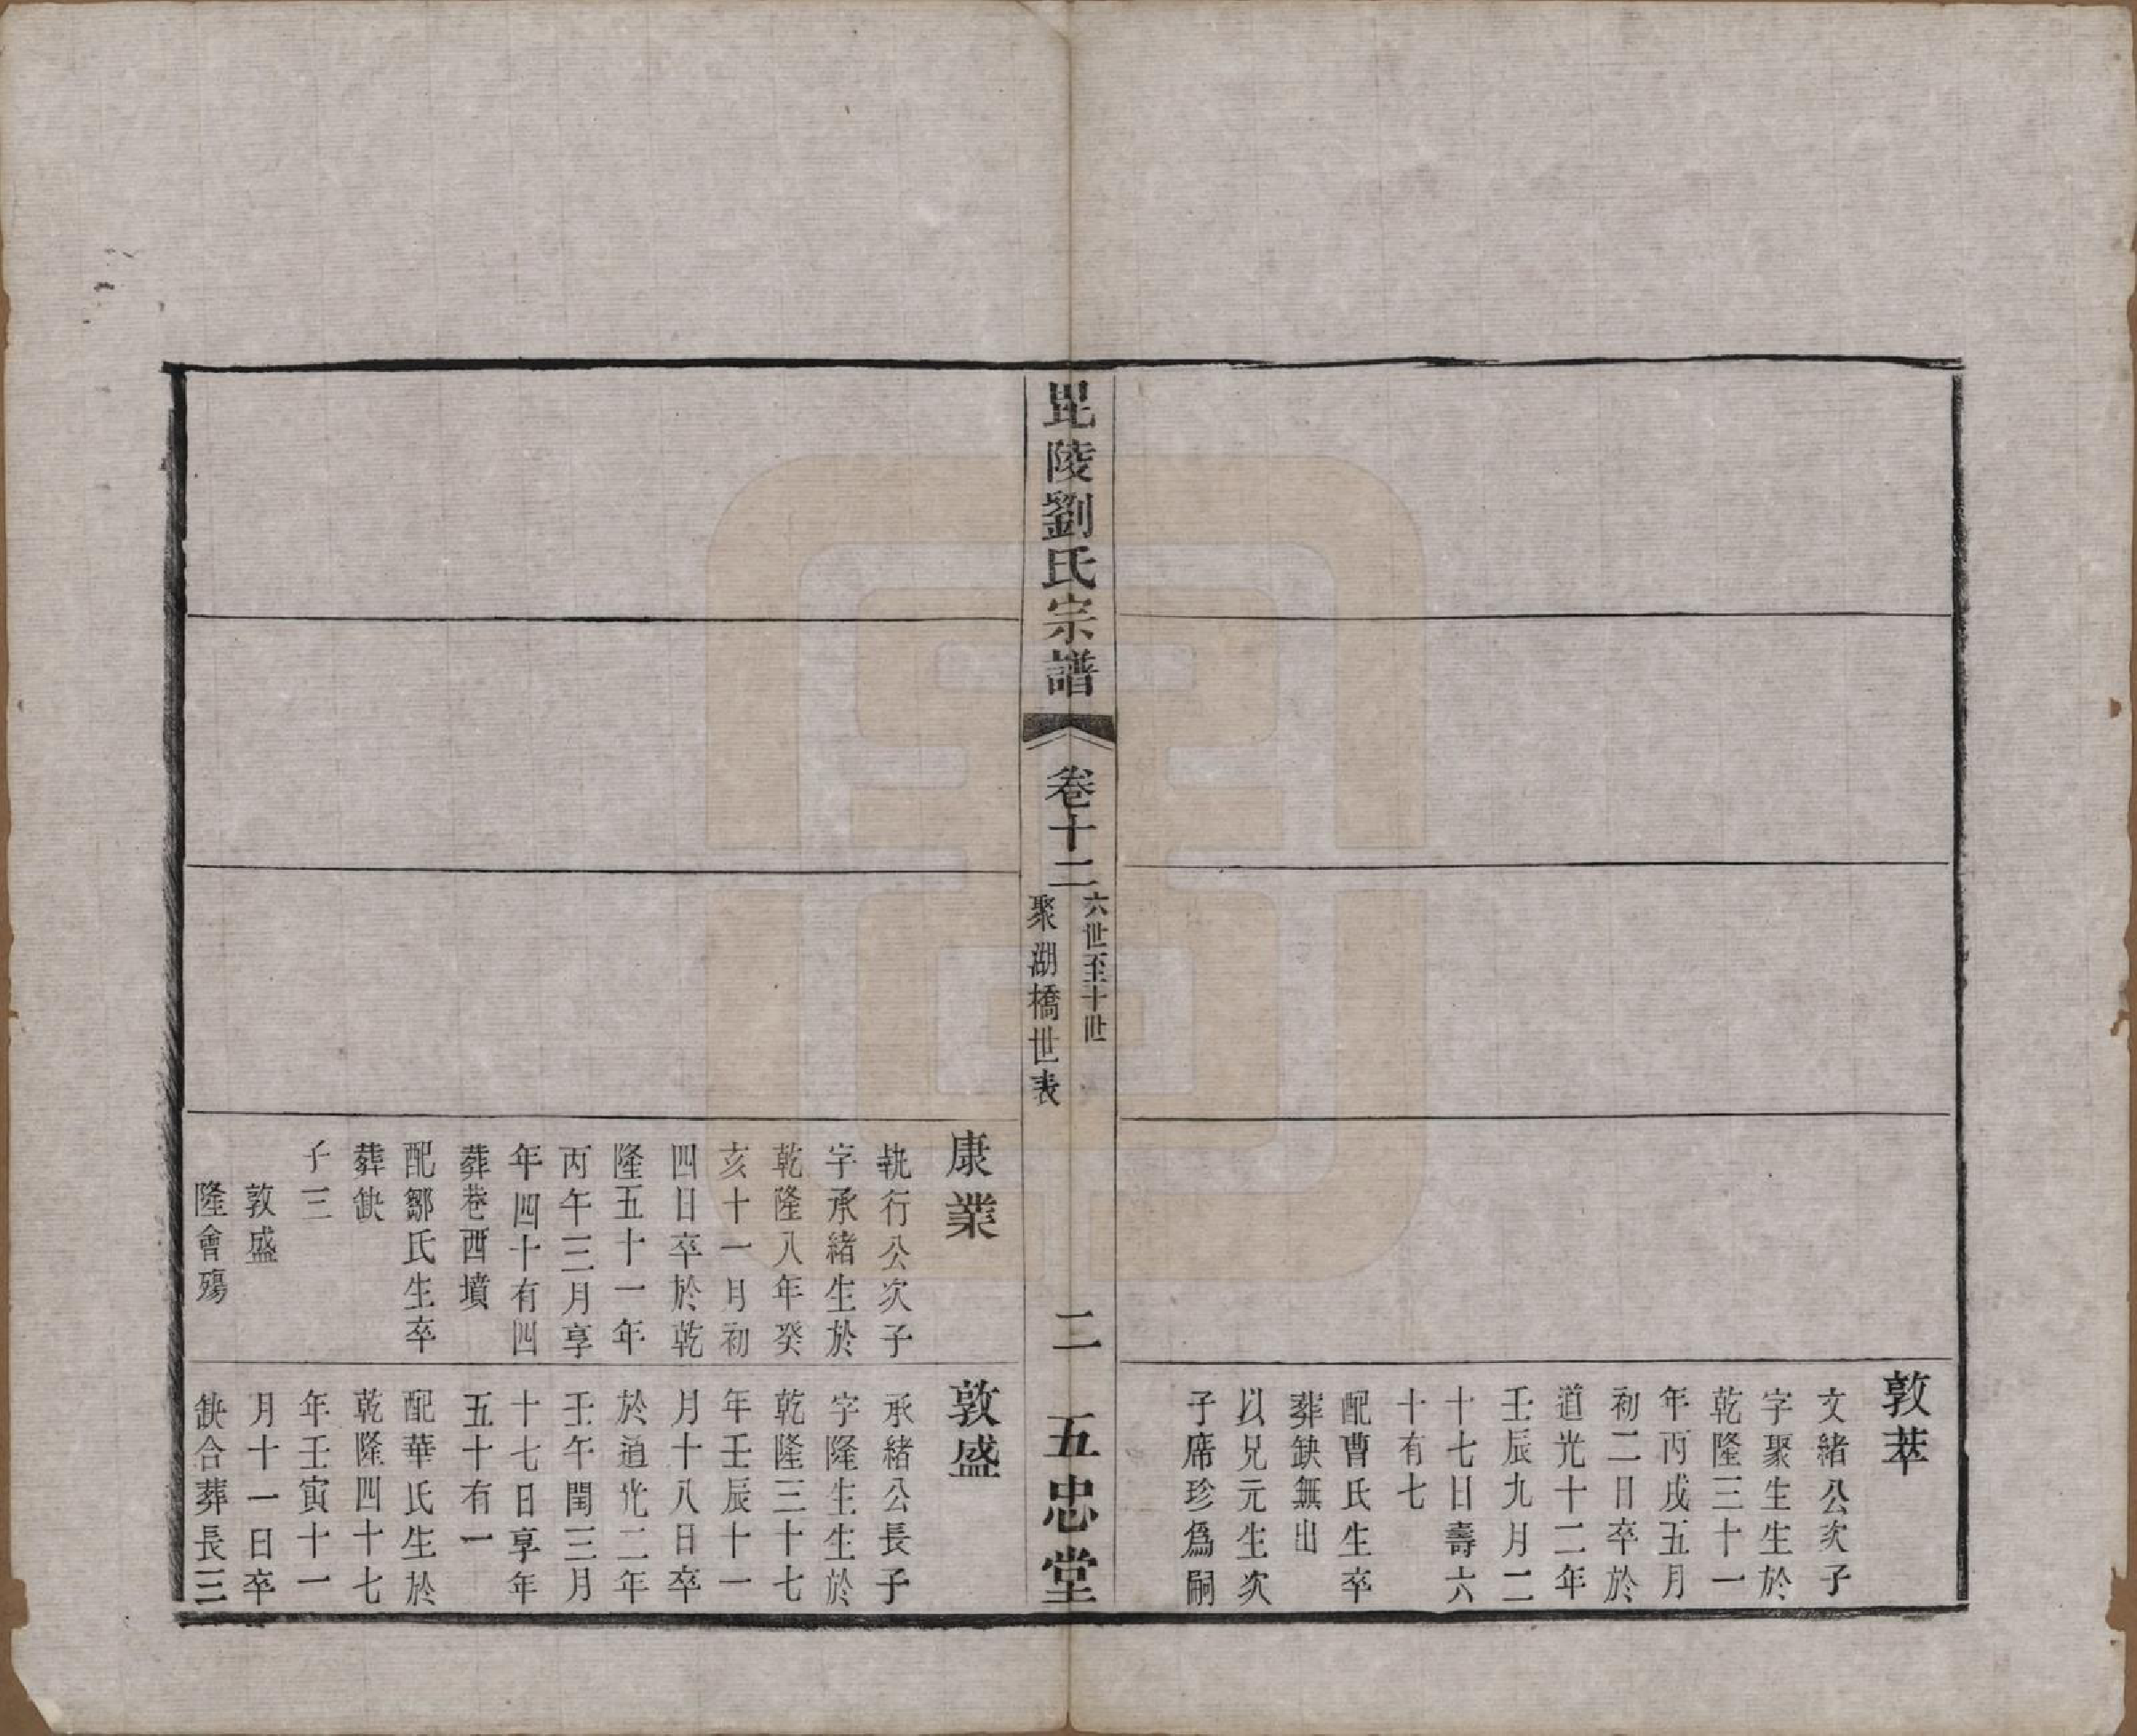 敦萃
文緒公次子
字聚生生於
乾隆三十一
年丙戌五月
初二日卒於
道光十二年
壬辰九月二
十七日壽六
十有七
配曹氏生卒
葬缺無出
以兄元生次
子席珍爲嗣
毘陵劉氏宗譜
卷十二
六世至十世
聚湖橋世表
二
五忠堂
康業
執行公次子
字承緒生於
乾隆八年癸
亥十一月初
四日卒於乾
隆五十一年
丙午三月享
年四十有四
葬巷西墳
配鄒氏生卒
葬缺
子三
敦盛
隆會殤
敦盛
承緒公長子
字隆生生於
乾隆三十七
年壬辰十一
月十八日卒
於道光二年
壬午閏三月
十七日享年
五十有一
配華氏生於
乾隆四十七
年壬寅十一
月十一日卒
缺合葬長三